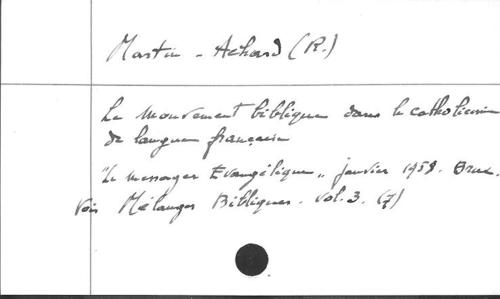 Martin - Achard (R.)
Le mouvement biblique dans le catholicisme
de langue française
"Le messager Evangélique„ janvier 1958.
Voir Mélanges Bibliques. Vol. 3. (7)